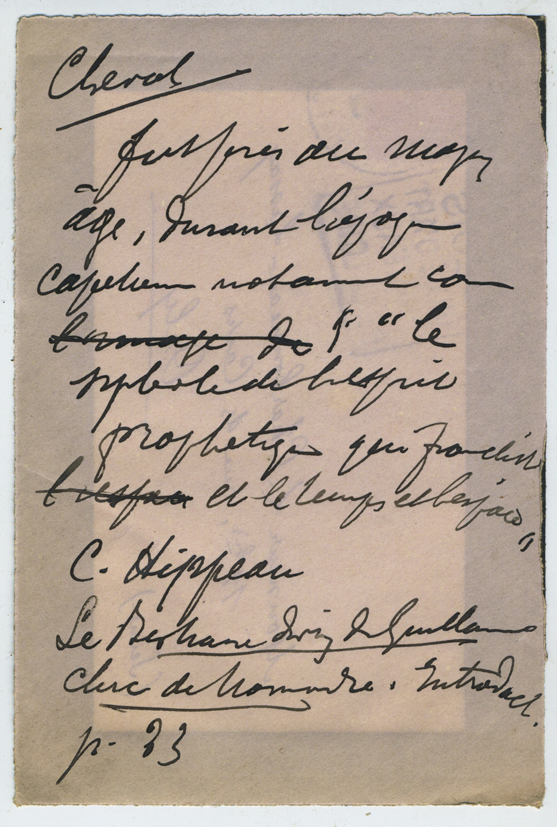 Cheval
fut pris au moyen
âge, durant l'époque
capétienne notamment co
l'image de "le
symbole de l'esprit
prophétique qui franchit
l'espace et le temps et l'espace"
C. Hippeau
Le Bestiaire divin de Guillaume
clerc de Normandie. Introduct.
p. 23